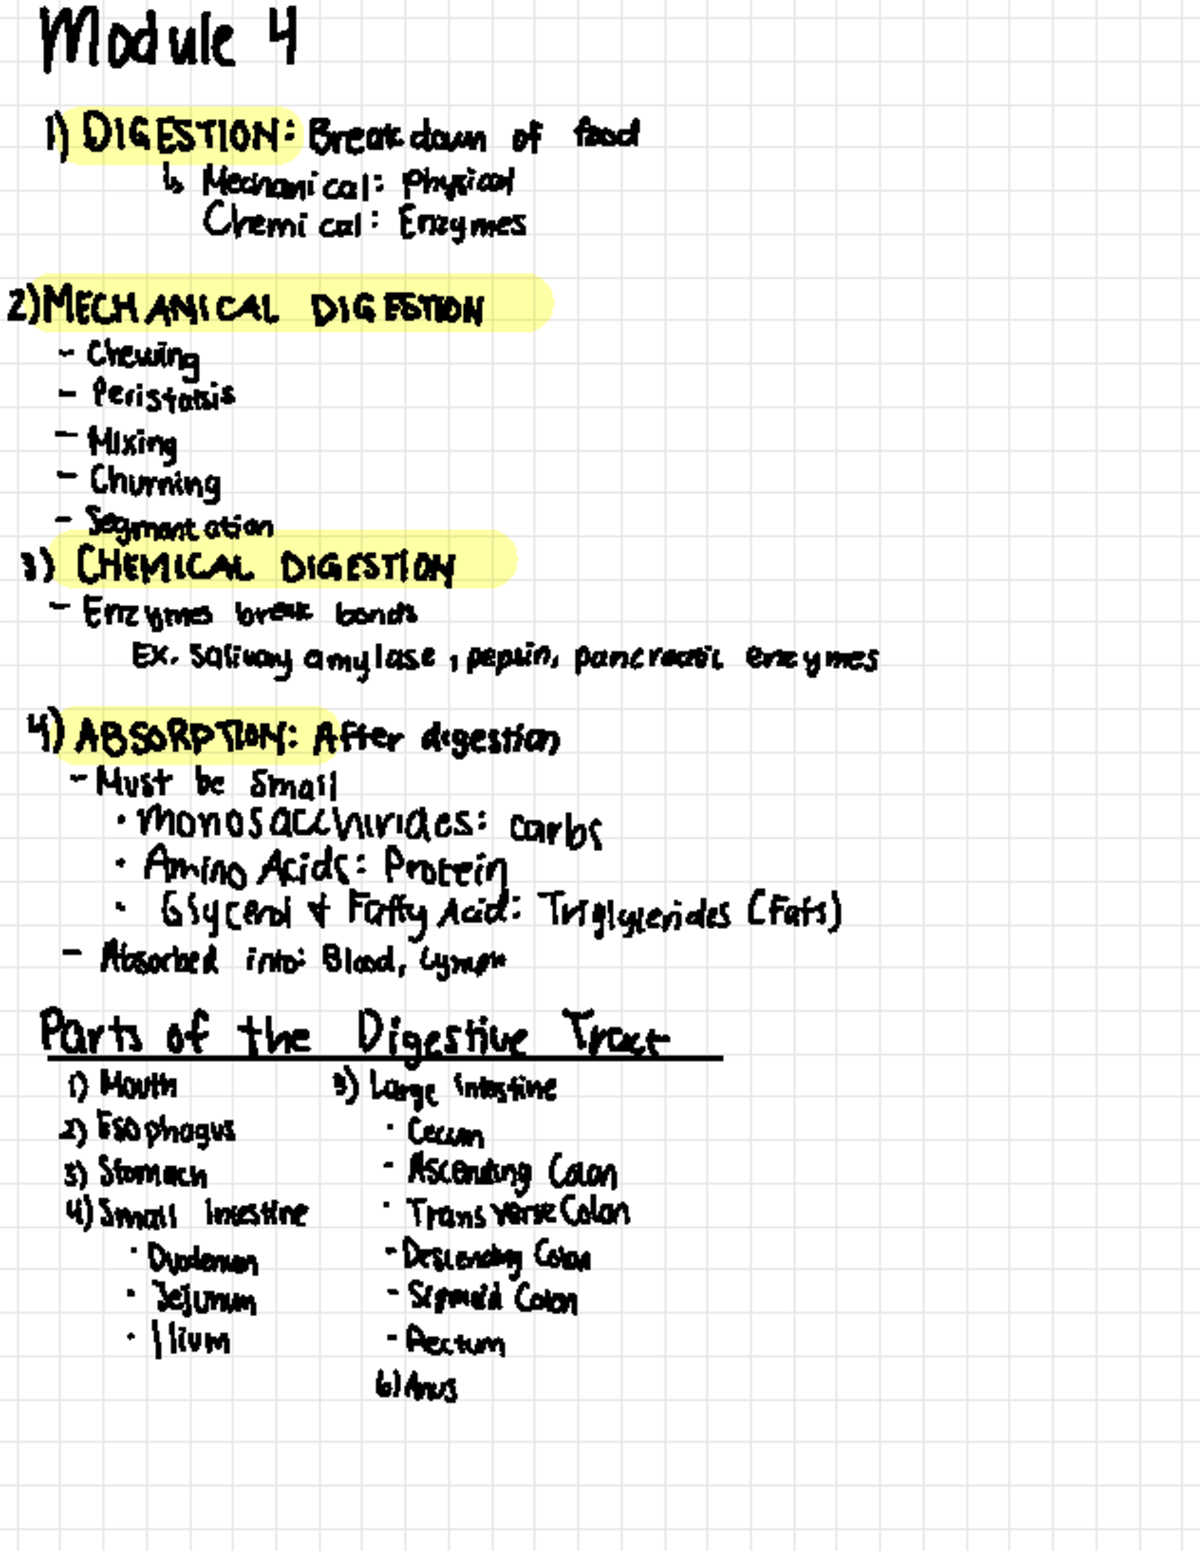 Module 4
1) DIGESTION: Breakdown of food
↳ Mechanical: Physical
Chemical: Enzymes
2) MECHANICAL DIGESTION
- Chewing
- Peristalsis
- Mixing
- Churning
- Segmentation
3) CHEMICAL DIGESTION
- Enzymes break bonds
Ex. Salivary amylase, pepsin, pancreatic enzymes
4) ABSORPTION: After digestion
- Must be small
• Monosacchirides: carbs
• Amino Acids: Protein
• Glycerol & Fatty Acid: Triglycerides (Fats)
- Absorbed into: Blood, Lymph
Parts of the Digestive Tract
1) Mouth
2) Esophagus
3) Stomach
4) Small Intestine
• Duodenum
• Jejunum
• Ilium
5) Large Intestine
• Cecum
- Ascending Colon
• Transverse Colon
- Descending Colon
- Sigmoid Colon
- Rectum
6) Anus